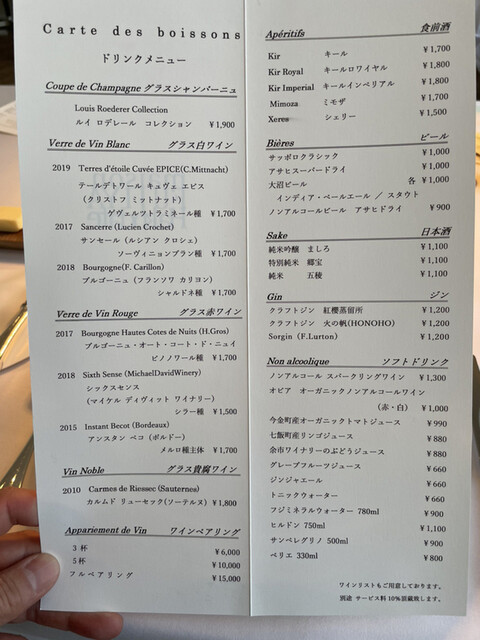 Carte des boissons
ドリンクメニュー
Coupe de Champagne グラスシャンパーニュ
Louis Roederer Collection
ルイ ロデレール コレクション ¥1,900
Verre de Vin Blanc グラス白ワイン
2019 Terres d'étoile Cuvée EPICE(C.Mittnacht)
テールデトワール キュヴェ エピス
(クリストフ ミットナット)
ゲヴェルツトラミネール種 ¥1,700
2017 Sancerre (Lucien Crochet)
サンセール (ルシアン クロシェ)
ソーヴィニョンブラン種 ¥1,700
2018 Bourgogne(F. Carillon)
ブルゴーニュ (フランソワ カリヨン)
シャルドネ種 ¥1,700
Verre de Vin Rouge グラス赤ワイン
2017 Bourgogne Hautes Cotes de Nuits (H.Gros)
ブルゴーニュ・オート・コート・ド・ニュイ
ピノノワール種 ¥1,700
2018 Sixth Sense (MichaelDavidWinery)
シックスセンス
(マイケル ディヴィット ワイナリー)
シラー種 ¥1,500
2015 Instant Becot (Bordeaux)
アンスタン ベコ (ボルドー)
メルロ種主体 ¥1,700
Vin Noble グラス貴腐ワイン
2010 Carmes de Riessec (Sauternes)
カルムド リューセック(ソーテルヌ) ¥1,800
Appariement de Vin ワインペアリング
3 杯 ¥6,000
5杯 ¥10,000
フルペアリング ¥15,000
Apéritifs 食前酒
Kir キール ¥1,700
Kir Royal キールロワイヤル ¥1,800
Kir Imperial キールインペリアル ¥1,800
Mimoza ミモザ ¥1,700
Xeres シェリー ¥1,500
Bières ビール
サッポロクラシック ¥1,000
アサヒスーパードライ ¥1,000
大沼ビール 各 ¥1,000
インディア・ペールエール / スタウト
ノンアルコールビール アサヒドライ ¥900
Sake 日本酒
純米吟醸 ましろ ¥1,100
特別純米 郷宝 ¥1,100
純米 五稜 ¥1,100
Gin ジン
クラフトジン 紅櫻蒸留所 ¥1,200
クラフトジン 火の帆(HONOHO) ¥1,200
Sorgin (F.Lurton) ¥1,200
Non alcoolique ソフトドリンク
ノンアルコール スパークリングワイン ¥1,300
オピア オーガニックノンアルコールワイン
(赤・白) ¥1,000
今金町産オーガニックトマトジュース ¥990
七飯町産リンゴジュース ¥880
余市ワイナリーのぶどうジュース ¥880
グレープフルーツジュース ¥660
ジンジャエール ¥660
トニックウォーター ¥660
フジミネラルウォーター 780ml ¥900
ヒルドン 750ml ¥1,100
サンペレグリノ 500ml ¥900
ペリエ 330ml ¥800
ワインリストもご用意しております。
別途 サービス料10%頂戴致します。